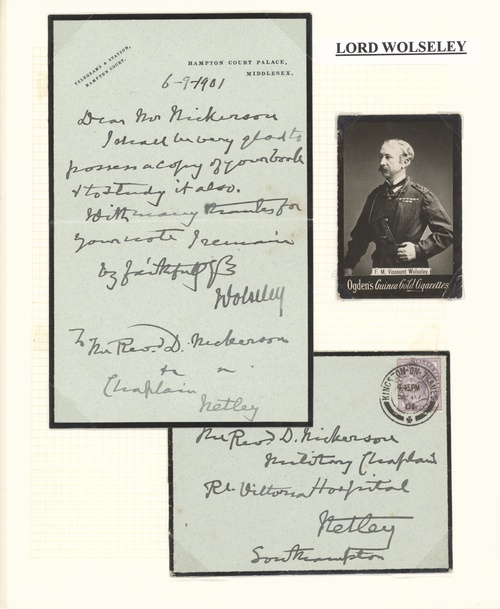 LORD WOLSELEY
TELEGRAMS & STATION,
HAMPTON COURT.
HAMPTON COURT PALACE,
MIDDLESEX.
6-9-1901
Dear Mr Nickerson
I shall be very glad to
possess a copy of your book
& to study it also.
With many thanks for
your note I remain
faithfully
Wolseley
To
The Revd. D. Nickerson
Chaplain
Netley
F. M. Viscount Wolseley
Ogden's Guinea Gold Cigarettes
KINGSTON-ON-THAMES
.45PM
The Revd. D. Nickerson
Military Chaplain
Rl. Victoria Hospital
Netley
Southampton